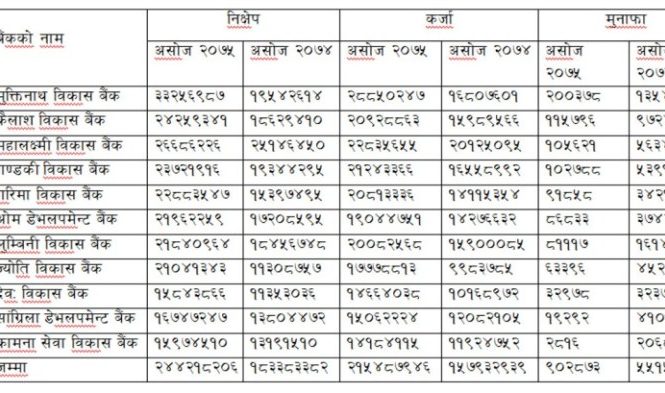 निक्षेप कर्जा मुनाफा
बैंकको नाम असोज २०७५ असोज २०७४ असोज २०७५ असोज २०७४ असोज २०७५
मुक्तिनाथ विकास बैंक ३३२५६९८७ १९५४२६१४ २८८५०२४७ १६८०७६०१ २००३७८
कैलाश विकास बैंक २४२५९३४१ १८६२९४१० २०९२८८६३ १५९८९५६६ ११५७९६
महालक्ष्मी विकास बैंक २६६८६२२६ २५१४६४५० २२८३५६५५ २०१२५०९५ १०५६२१
गण्डकी विकास बैंक २३७२१९१६ १९३४४२९५ २१२४३३६६ १६५५८९९२ १०२७८८
गरिमा विकास बैंक २२८८३५४७ १५३९७४९५ २०८१३३३६ १४११५३५४ ९१८५८
ओम डेभलपमेन्ट बैंक २१९६२२५९ १७२०८५९५ १९०४४७५१ १४२७६६३२ ८६८३३
लुम्विनी विकास बैंक २१८४०९६४ १८४५६७४८ २००८२५६८ १५९०००८५ ८१११७
ज्योति विकास बैंक २१०४१३४३ ११३०८७५७ १७७७८८१३ ९९८३७८५ ६३३९६
देवः विकास बैंक १५८४३८६६ ११३५३०३६ १४६६४०३८ १०१६८९७२ ३२९७८
सांग्रिला डेभलपमेन्ट बैंक १६७४७२४७ १३८०४४७२ १५०६२२२४ १२०८२१०५ १९२९२
कामना सेवा विकास बैंक १५९७४५१० १३१९१५१० १४१८४११५ ११९२४७५२ २८१६
जम्मा २४४२१८२०६ १८३३८३३८२ २१५४८७९४६ १५७९३२९३९ ९०२८७३